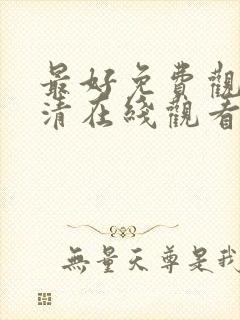 最好免費觀
清在綫觀看
無量天尊是我